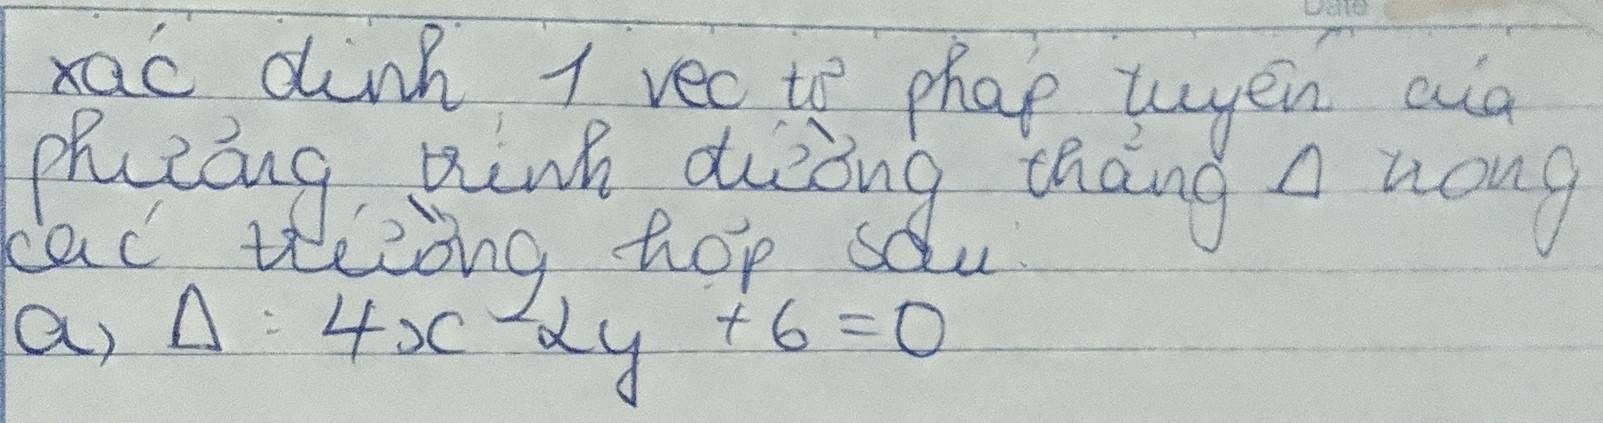 Date
xác định 1 vec tơ pháp tuyến của
phương trình đường thẳng Δ trong
các trường hợp sau:
a, Δ : 4x - 2y + 6 = 0